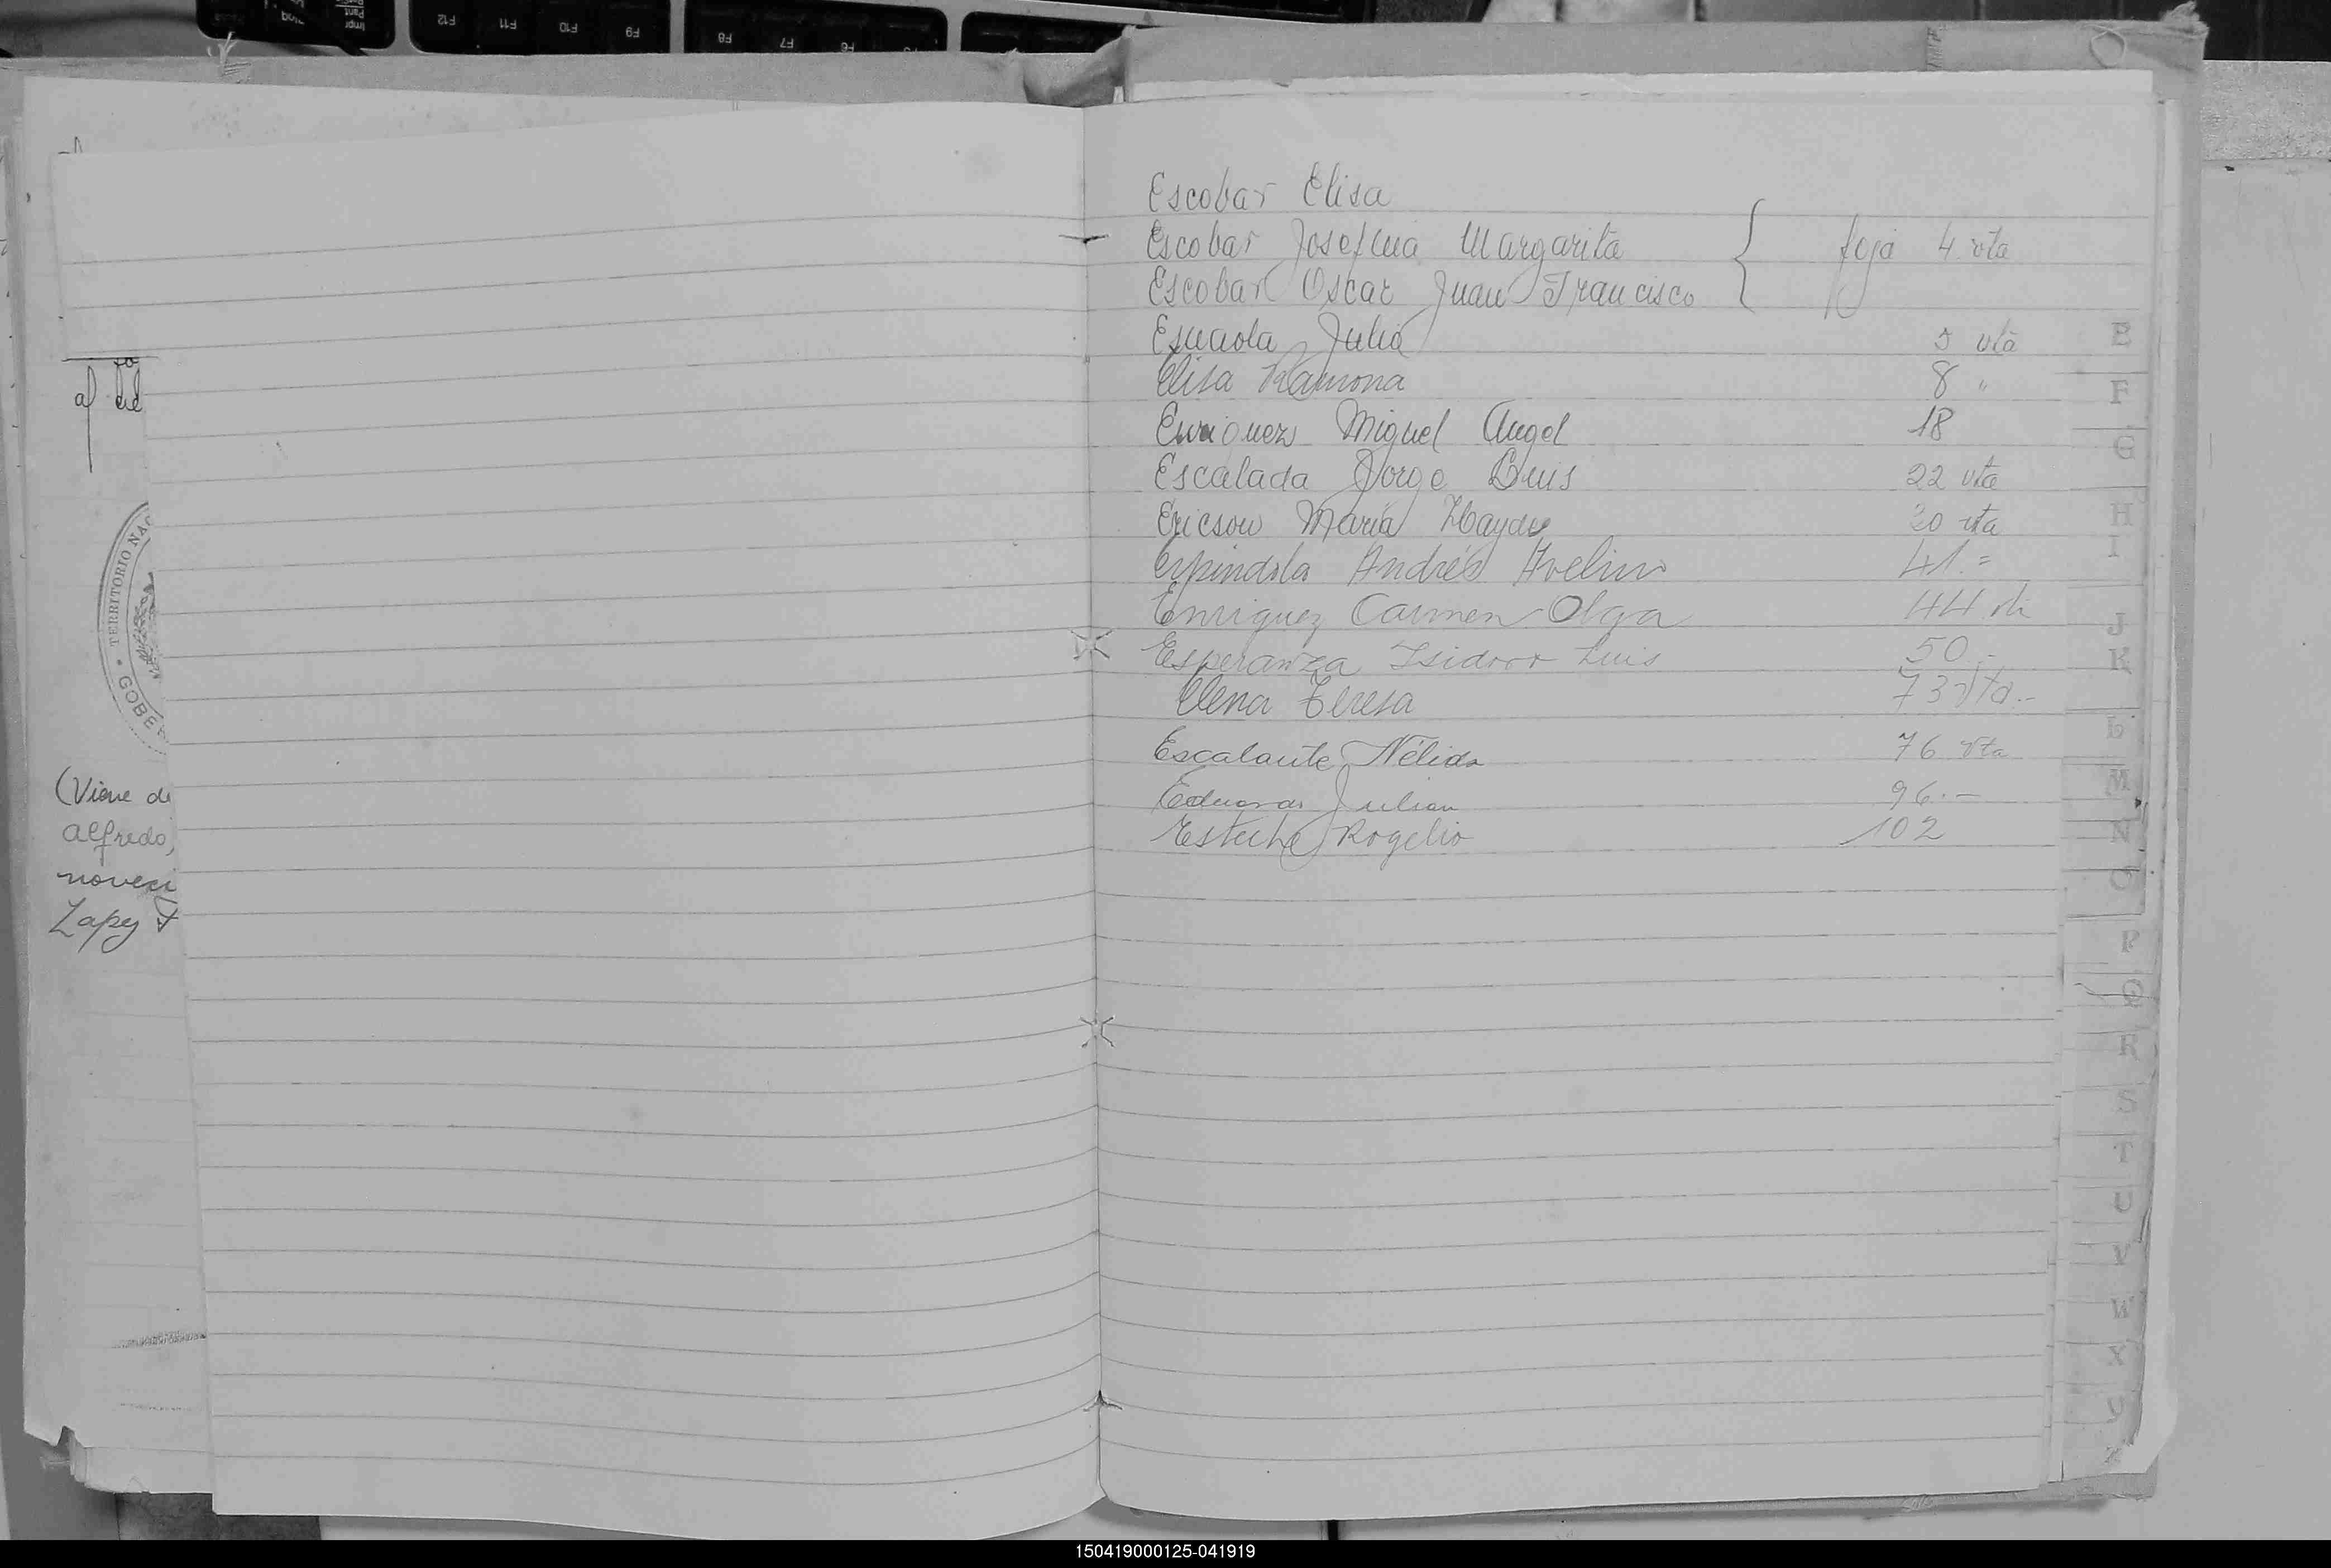 af
TERRITORIO NAC
GOBE
(Viene de
alfredo,
noveci
Zapey
Escobar Elisa
Escobar Josefina Margarita
Escobar Oscar Juan Francisco
foja 4 vta
Julia 5 vta
Elisa Ramona 8 "
Enriquez Miguel Angel 18
Escalada Jorge Luis 22 vta
Ericson María Haydee 30 vta
Espindola Andrés Avelino 41.=
Enriquez Carmen Olga 44 vta
Esperanza Isidoro Luis 50.-
Elena Teresa 73 vta.-
Escalante Nélida 76 vta
Julian 96.-
Esteche Rogelio 102
E
F
G
H
I
J
K
L
M
N
O
P
Q
R
S
T
U
V
W
X
Y
Z
F12
F11
F10
F9
F8
F7
F6
150419000125-041919